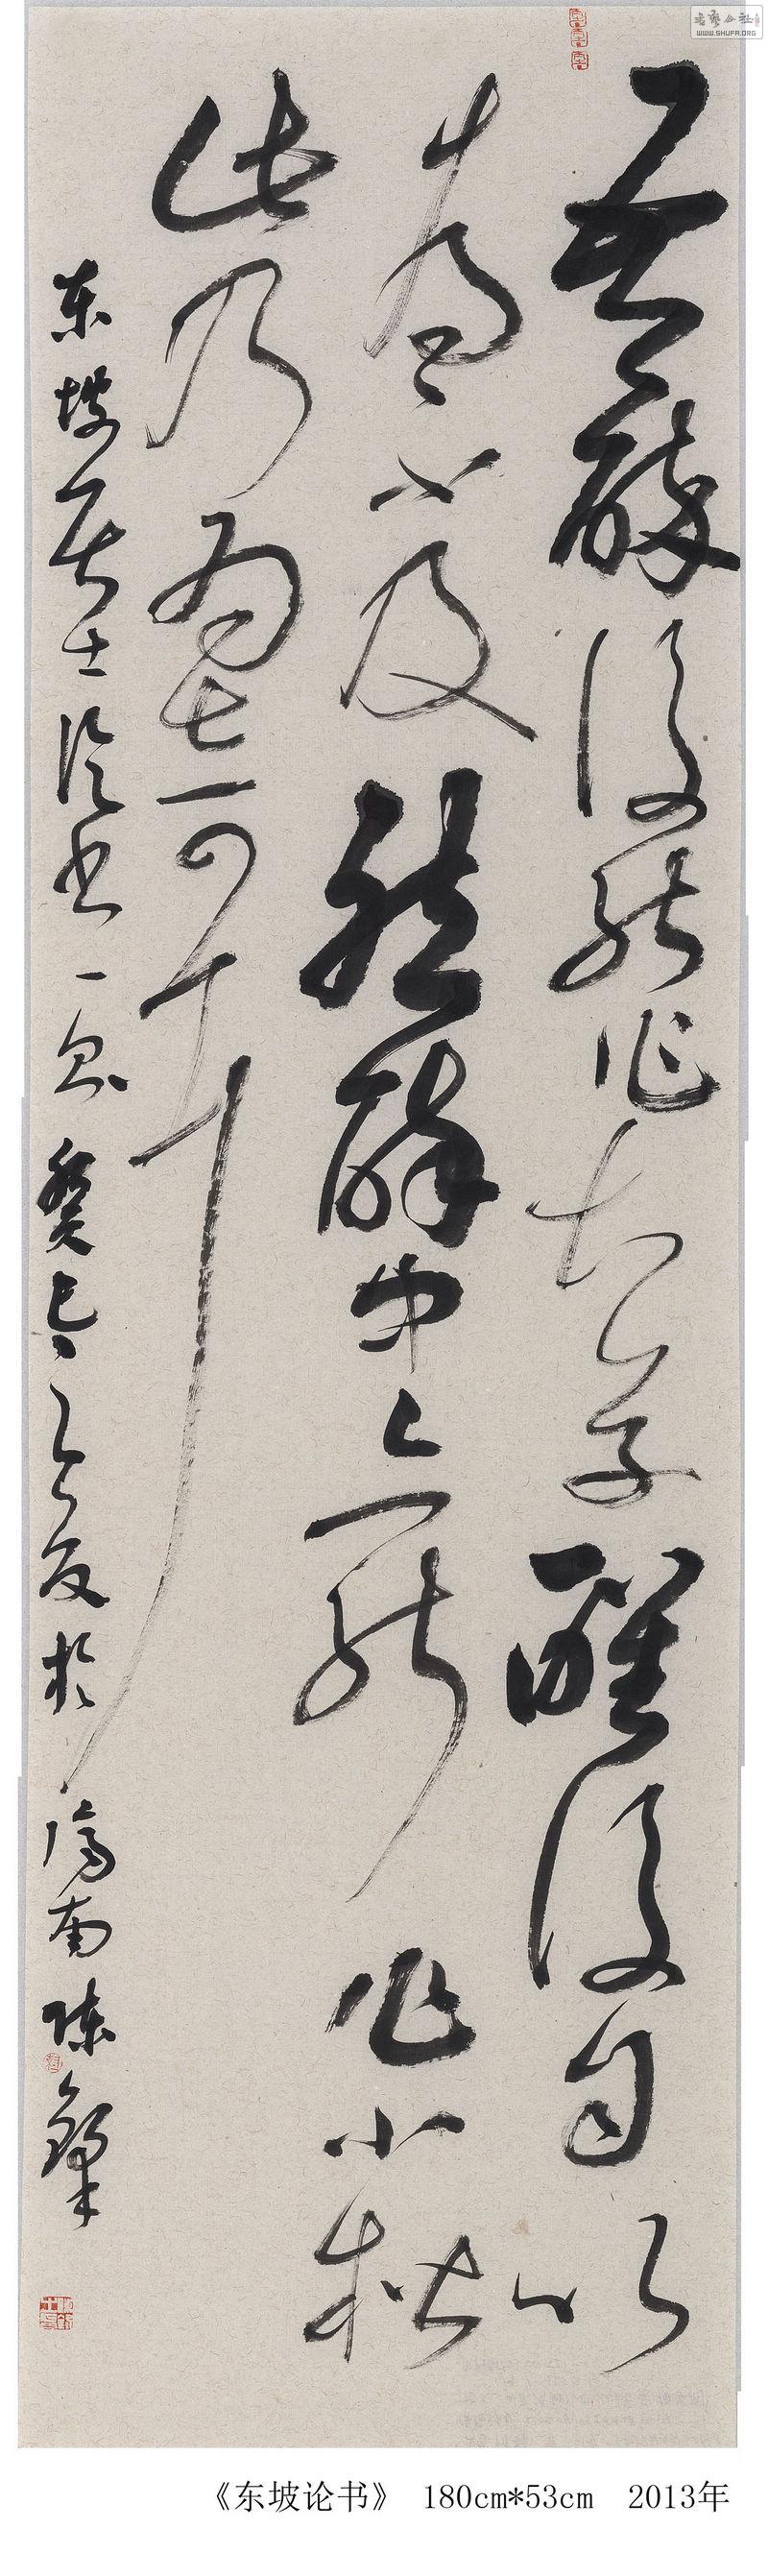 吾醉後能作大草醒後自以
為不及然醉中亦能作小楷
此乃為奇耳
东坡居士论书一则癸巳之夏於济南陈肇
书艺公社
WWW.SHUFA.ORG
《东坡论书》 180cm*53cm 2013年